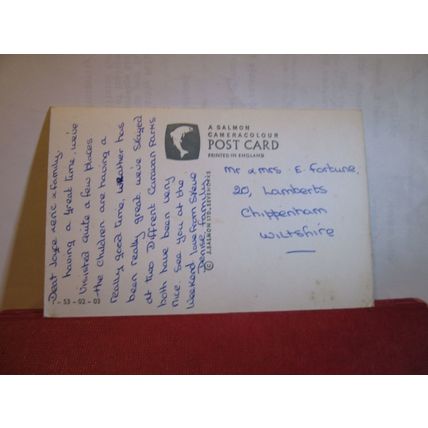 Dear Joyce + eric + family.
having a great time, we've
visited quite a few places
the children are having a
really good time, weather has
been really great we've stayed
at two Diffrent Caravan Parks
both have been very
nice. see you at the
weekend love from Steve
Denise family
- 53 - 02 - 03
© J. SALMON LTD. SEVENOAKS
A SALMON
CAMERACOLOUR
POST CARD
PRINTED IN ENGLAND
Mr & mrs E. Fortune,
20, Lamberts
Chippenham
Wiltshire